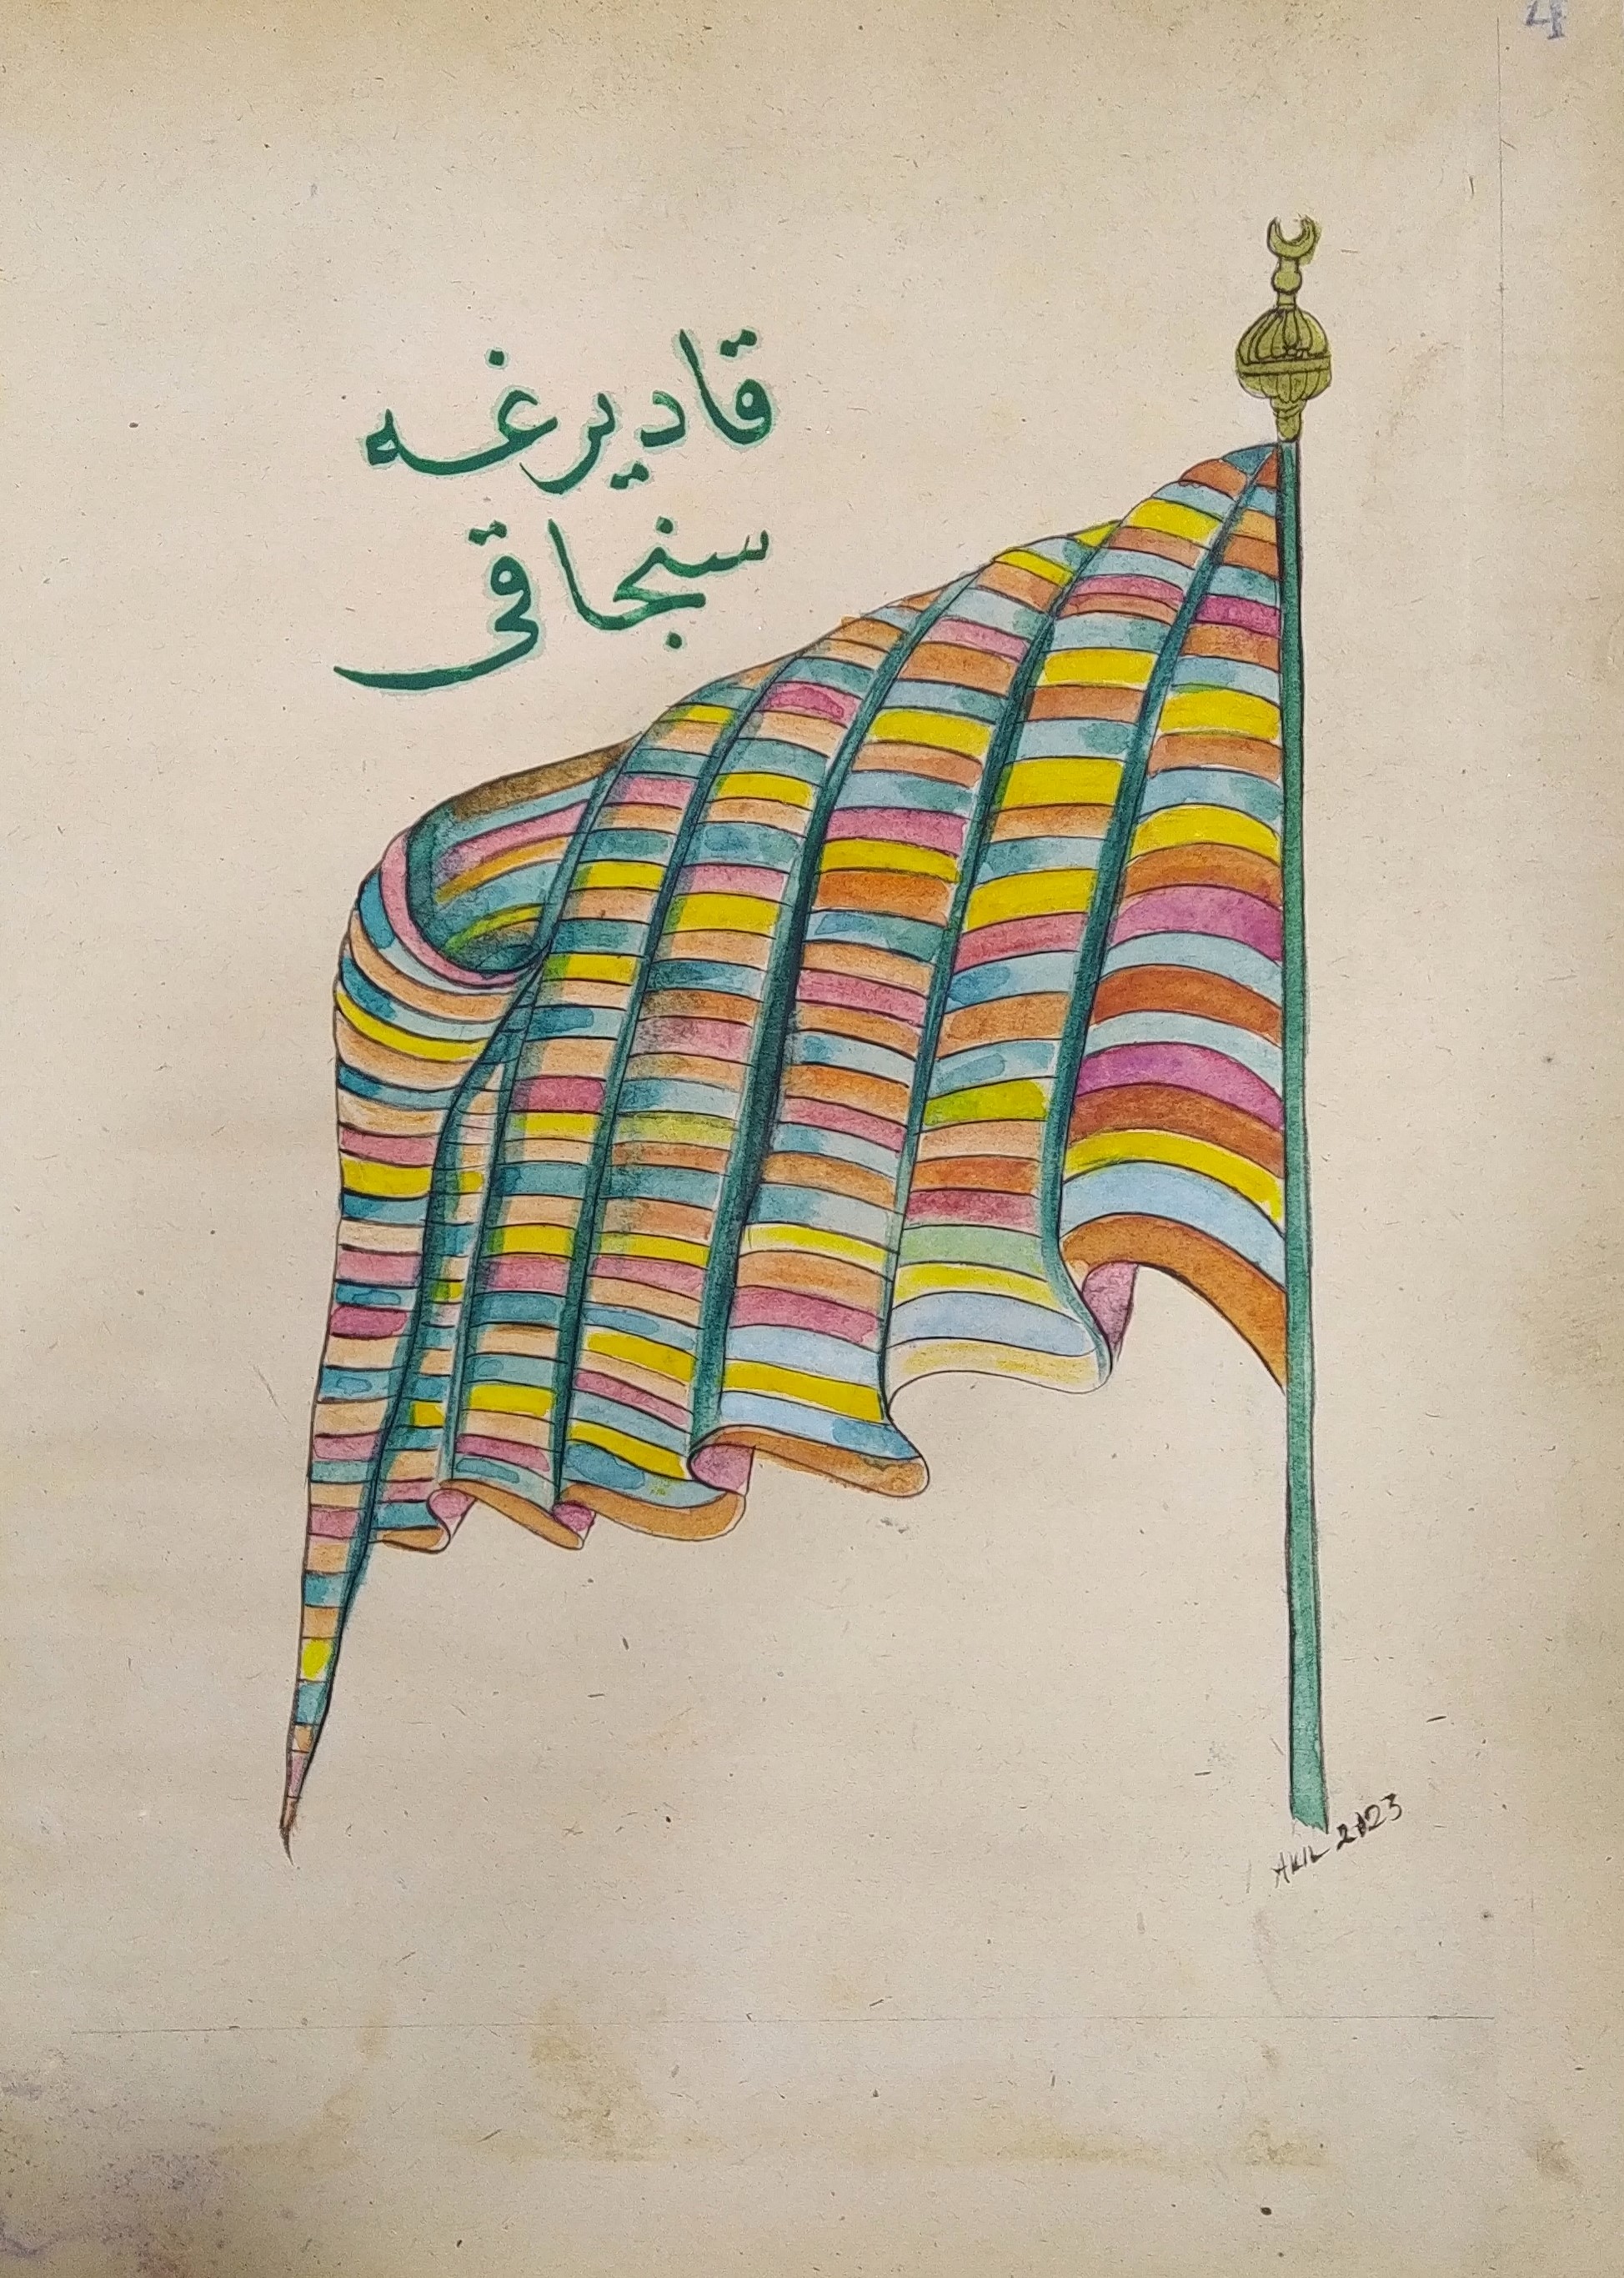 4
قاديرغه
سنجاقی
AKIL 2023